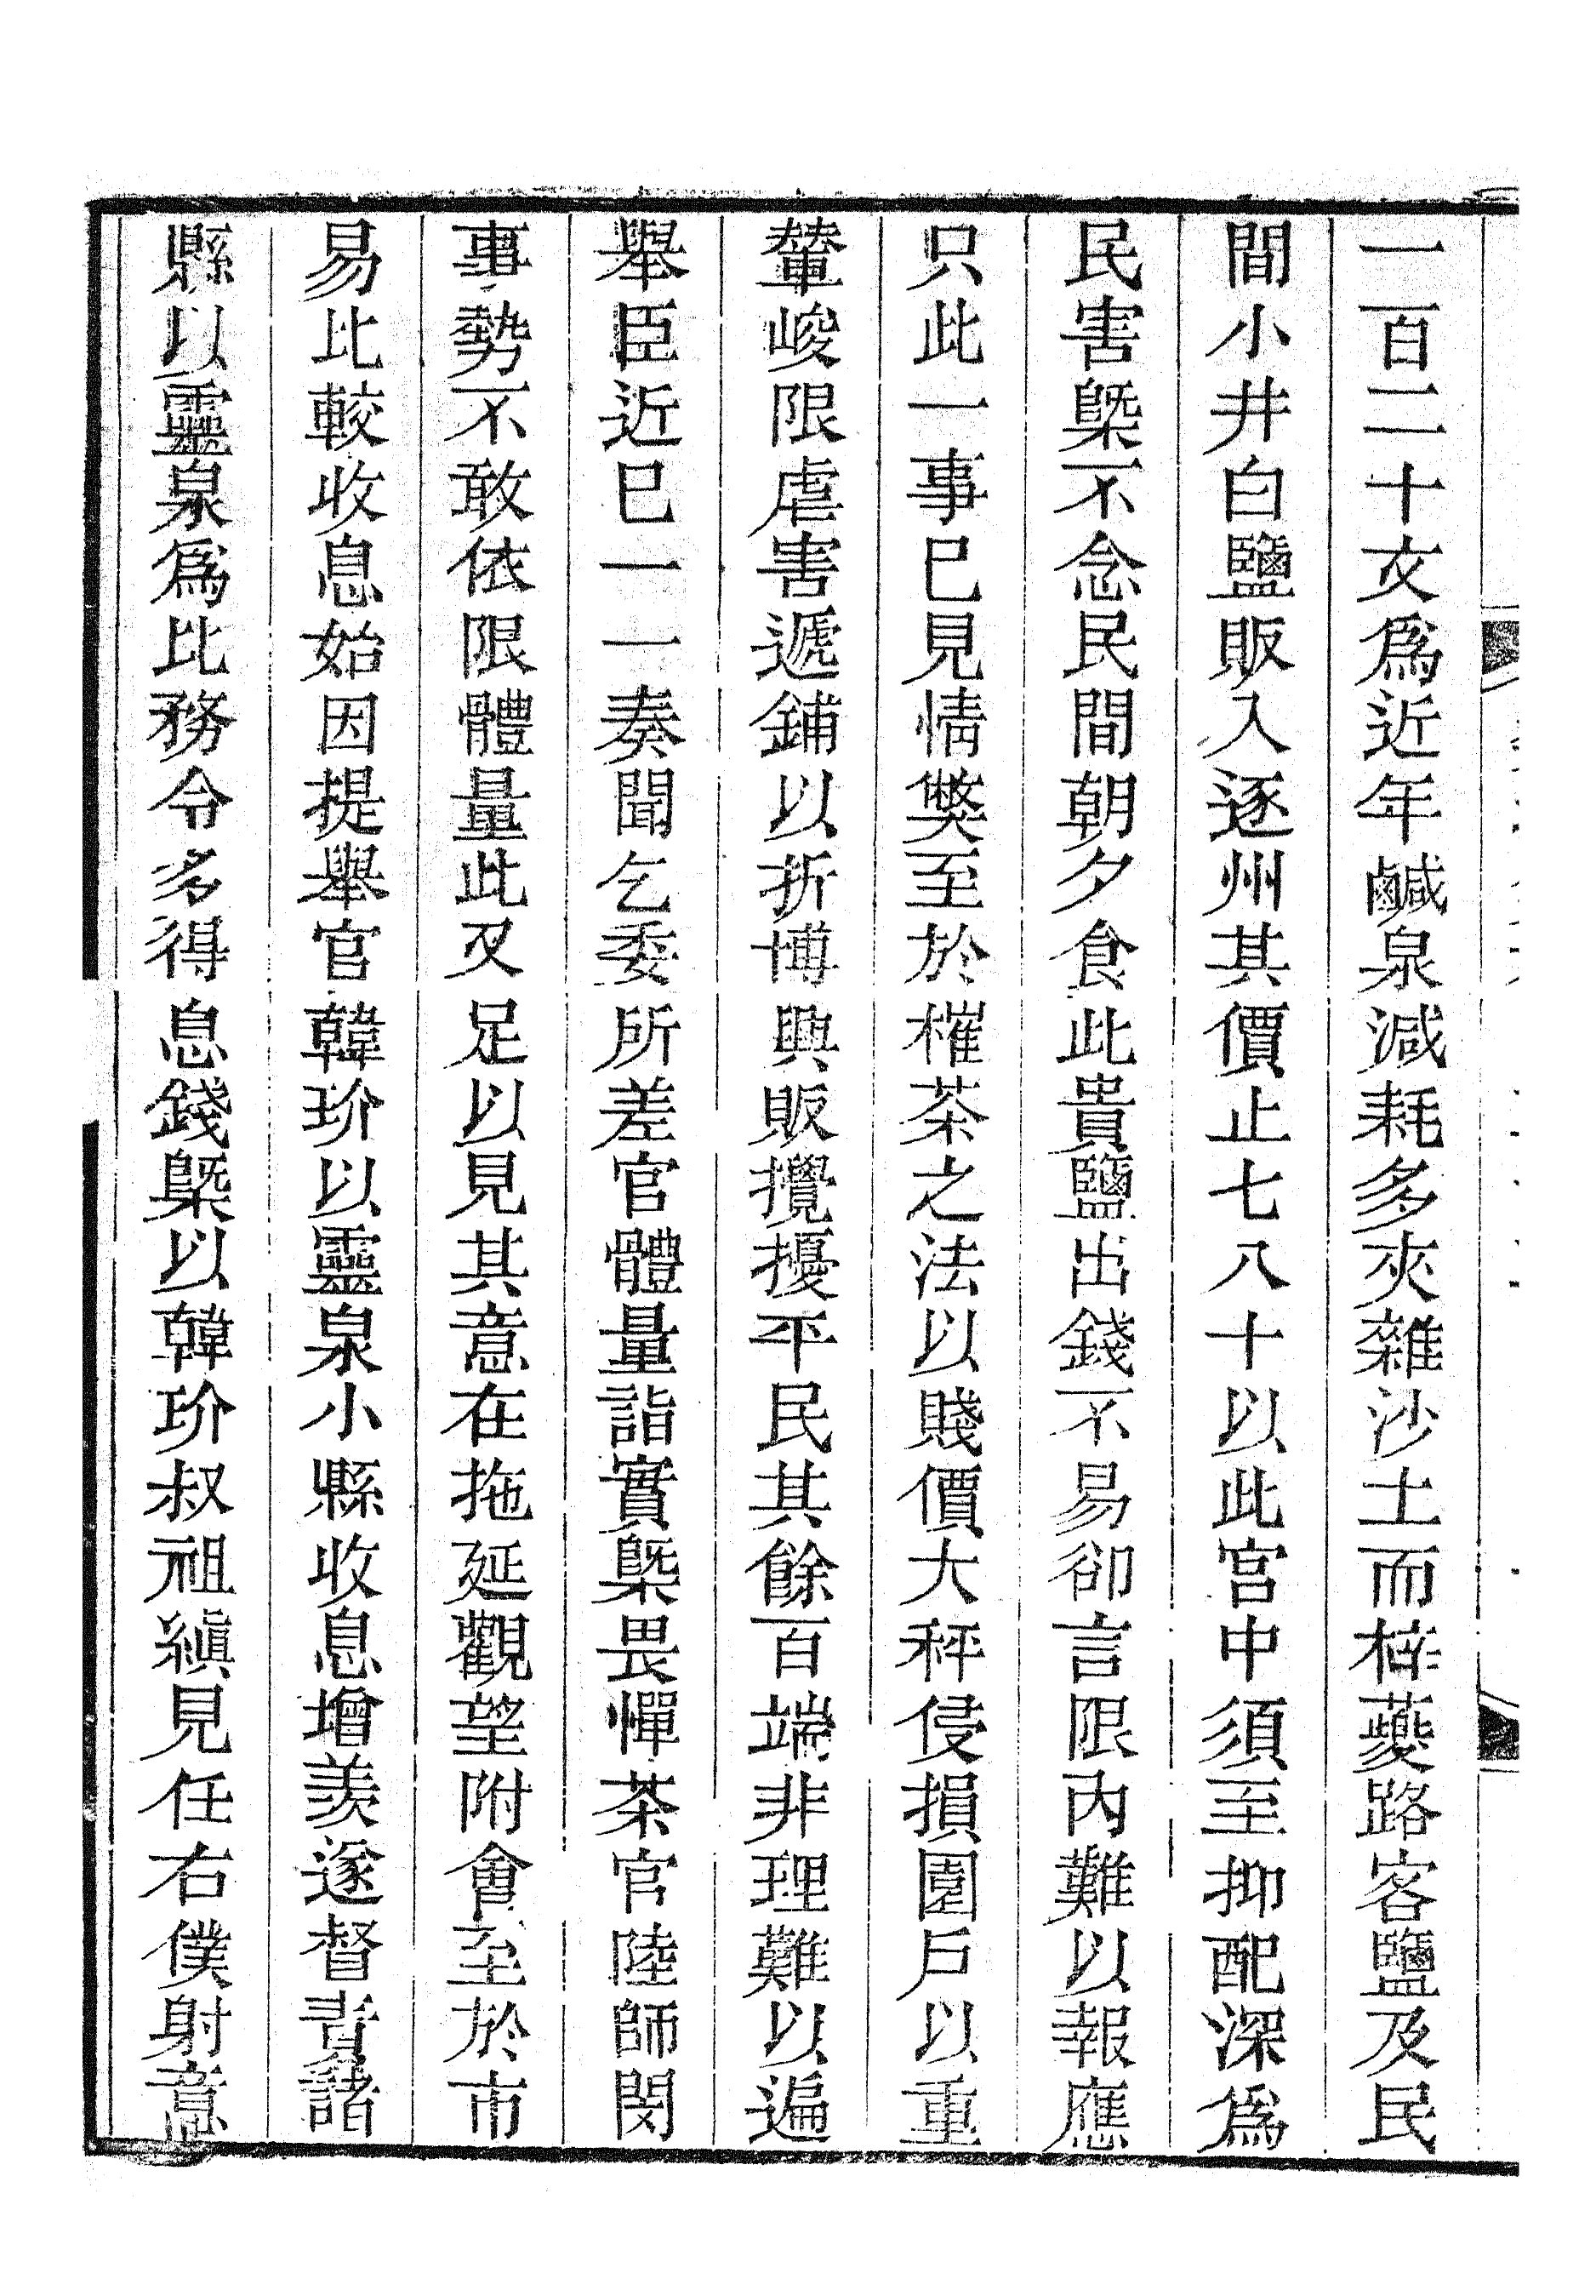 一百二十文爲近年鹹泉減耗多夾雜沙土而梓夔路客鹽及民
間小井白鹽販入逐州其價止七八十以此官中須至抑配深爲
民害㮣不念民間朝夕食此貴鹽出錢不易卻言限內難以報應
只此一事已見情獘至於榷茶之法以賤價大秤侵損園戶以重
輦峻限虐害遞鋪以折博興販攪擾平民其餘百端非理難以遍
舉臣近已一一奏聞乞委所差官體量詣實㮣畏憚茶官陸師閔
事勢不敢依限體量此又足以見其意在拖延觀望附會至於市
易比較收息始因提舉官韓玠以靈泉小縣收息增羨遂督責諸
縣以靈泉爲比務令多得息錢㮣以韓玠叔祖縝見任右僕射意